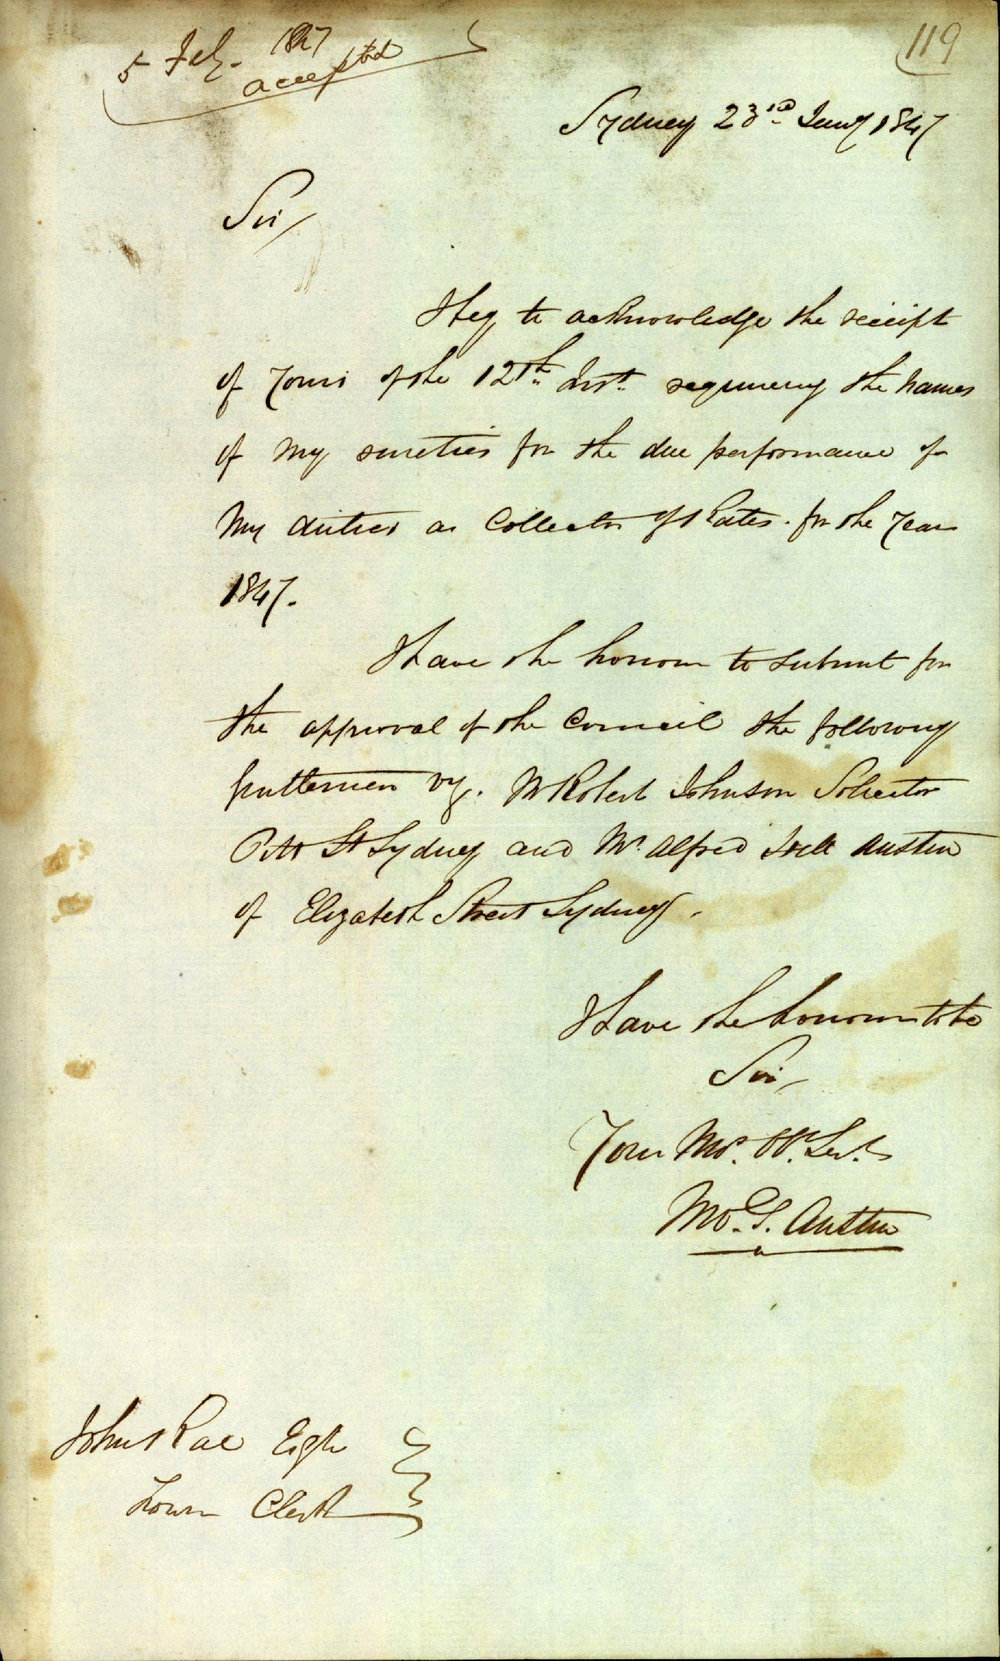 5 Feby. 1847
accepted
119
Sydney 23rd Jany 1847
Sir/
I beg to acknowledge the receipt
of Yours of the 12th Inst. requiring the names
of my sureties for the due performance of
My duties as Collector of Rates. for the Year
1847.
I have the honour to submit for
the approval of the Council the following
Gentlemen viz. Mr Robert Johnson Solicitor
Pitt St Sydney and Mr. Alfred Austin
of Elizabeth Street Sydney.
I have the honour to be
Sir/
Your Mo. Ob. Sert.
Austin
John Rae Esqre
Town Clerk